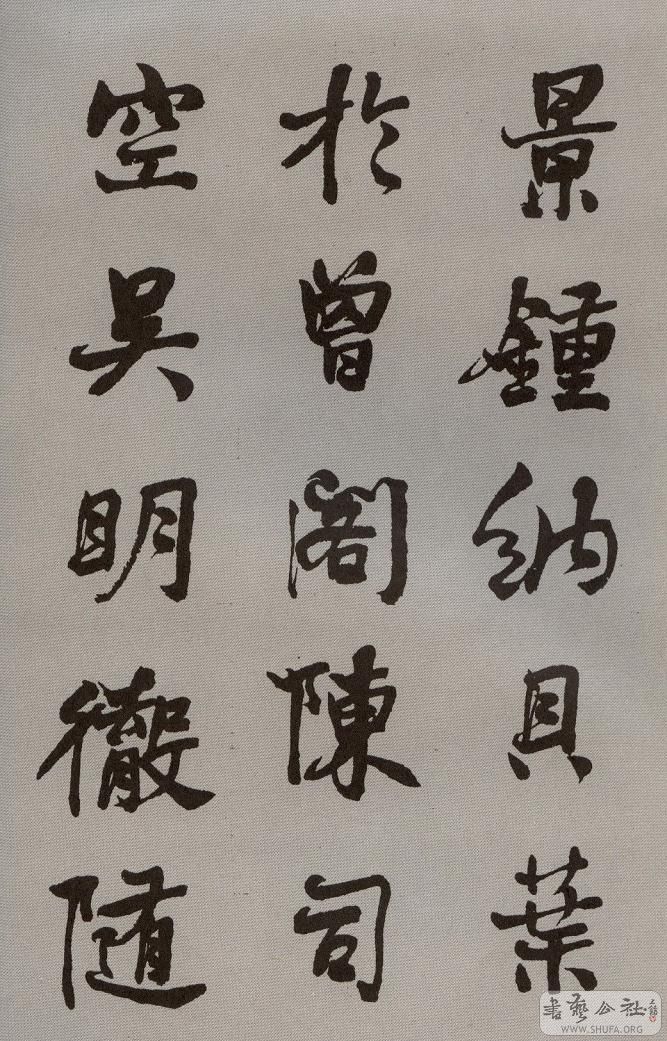 景鍾納貝葉
於曾閣陳司
空吳明徹隨
書藝公社
WWW.SHUFA.ORG